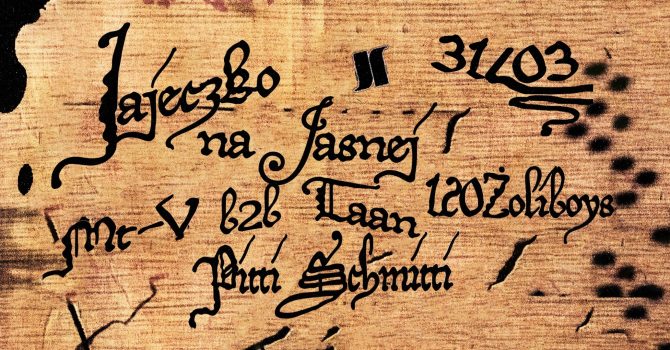 Jajeczko 31/03
na Jasnej
Mr-V b2b Taan 120Żoliboys
Pitti Schmitti